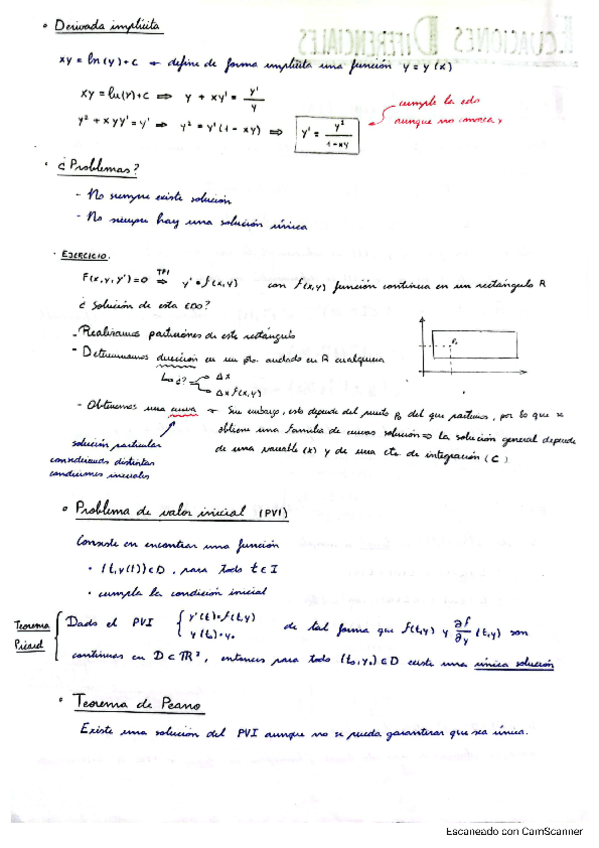 • Derivada implícita
xy = ln(y)+C → define de forma implícita una función y = y(x)
xy = ln(y)+C ⇒ y + xy' = y'/y
y² + xyy' = y' ⇒ y² = y'(1-xy) ⇒ y' = y²/1-xy
cumple la edo
aunque no conozca y
• ¿Problemas?
- No siempre existe solución
- No siempre hay una solución única
· EJERCICIO.
F(x,y,y')=0 ⇒ y' = f(x,y) con f(x,y) función continua en un rectángulo R
TFI
¿Solución de esta EDO?
- Realizamos particiones de este rectángulo
- Determinamos dirección en un pto. anclado en R cualquiera
↳ ¿? Δx
Δx f(x,y)
P₀
- Obtenemos una curva → Sin embargo, esto depende del punto P₀ del que partimos, por lo que se
obtiene una familia de curvas solución ⇒ la solución general depende
de una variable (x) y de una cte. de integración (C)
solución particular
considerando distintas
condiciones iniciales
• Problema de valor inicial (PVI)
Consiste en encontrar una función
• (t,y(t)) ∈ D, para todo t ∈ I
• cumpla la condición inicial
Teorema
Picard
Dado el PVI { y'(t)=f(t,y) y(t₀)=y₀ de tal forma que f(t,y) y ∂f/∂y (t,y) son
continuas en D ⊂ ℝ², entonces para todo (t₀,y₀) ∈ D existe una única solución
• Teorema de Peano
Existe una solución del PVI aunque no se pueda garantizar que sea única.
ECUACIONES DIFERENCIALES
Escaneado con CamScanner